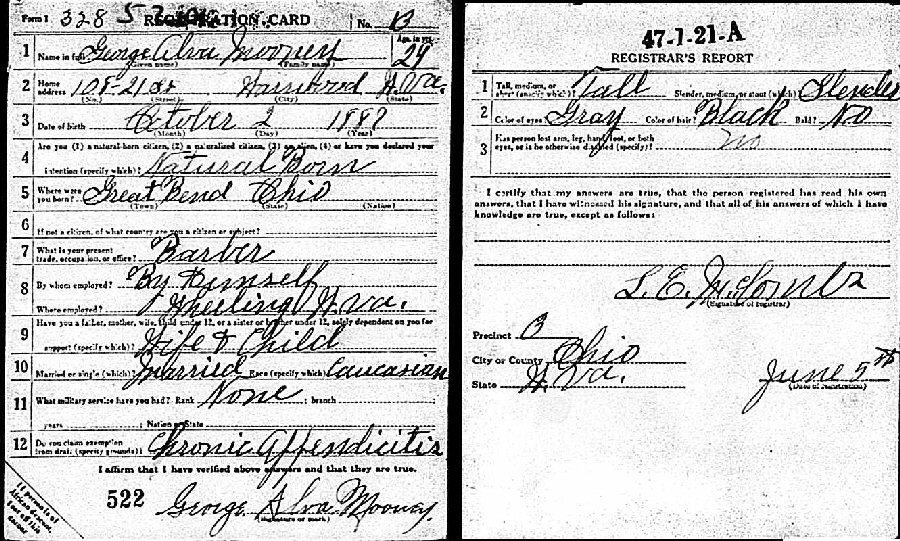 Form 1 328 REGISTRATION CARD No. B
1 Name in full George Alva Mooney Age, in yrs. 29
(Given name) (Family name)
2 Home address 108-21 St W. Va.
(No.) (Street) (City) (State)
3 Date of birth October 2 1887
(Month) (Day) (Year)
4 Are you (1) a natural-born citizen, (2) a naturalized citizen, (3) an alien, (4) or have you declared your
intention (specify which)? Natural Born
5 Where were you born? Great Bend Ohio
(Town) (State) (Nation)
6 If not a citizen, of what country are you a citizen or subject?
7 What is your present trade, occupation, or office? Barber
8 By whom employed? By Himself
Where employed? Wheeling W. Va.
9 Have you a father, mother, wife, child under 12, or a sister or brother under 12, solely dependent on you for
support (specify which)? Wife & Child
10 Married or single (which)? Married Race (specify which)? Caucasian
11 What military service have you had? Rank None ; branch
years ; Nation or State
12 Do you claim exemption from draft (specify grounds)? Chronic Appendicitis
I affirm that I have verified above answers and that they are true.
522 George Alva Mooney
(Signature or mark)
If person is of African descent, tear off this corner
47-1-21-A
REGISTRAR'S REPORT
1 Tall, medium, or short (specify which)? Tall Slender, medium, or stout (which)? Slender
2 Color of eyes Gray Color of hair? Black Bald? No
3 Has person lost arm, leg, hand, foot, or both eyes, or is he otherwise disabled (specify)? No
I certify that my answers are true, that the person registered has read his own
answers, that I have witnessed his signature, and that all of his answers of which I have
knowledge are true, except as follows:
L. E.
(Signature of registrar)
Precinct B
City or County Ohio
State W. Va. June 5th
(Date of registration)